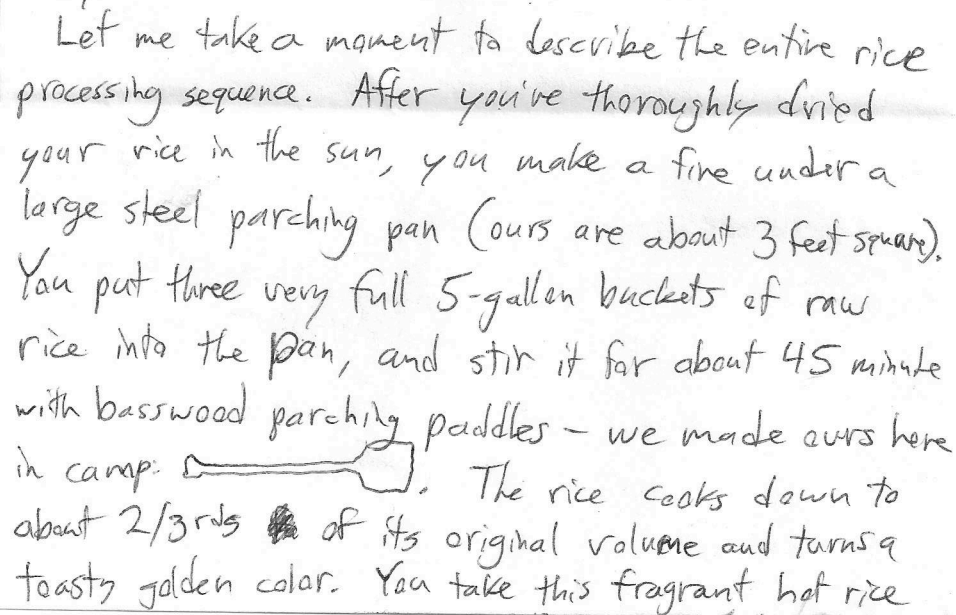 Let me take a moment to describe the entire rice
processing sequence. After you've thoroughly dried
your rice in the sun, you make a fire under a
large steel parching pan (ours are about 3 feet square).
You put three very full 5-gallon buckets of raw
rice into the pan, and stir it for about 45 minute
with basswood parching paddles – we made ours here
in camp: . The rice cooks down to
about 2/3rds of its original volume and turns a
toasty golden color. You take this fragrant hot rice